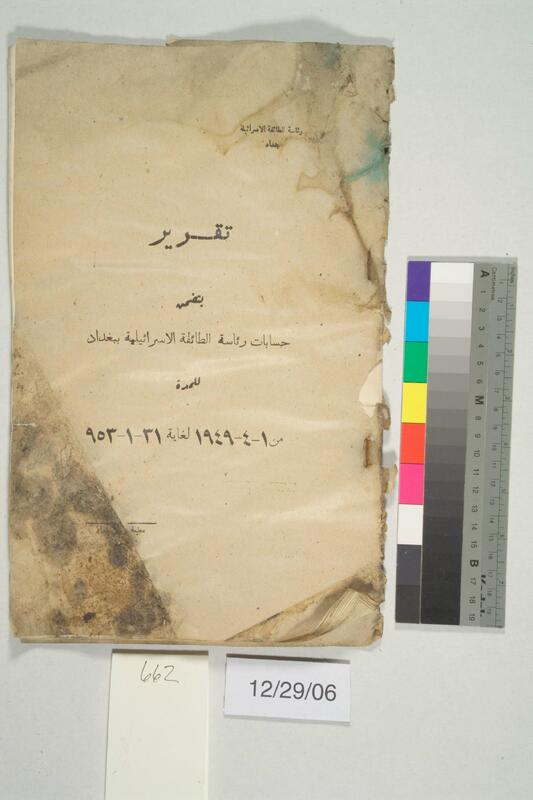 رئاسة الطائفة الاسرائيلية
بغداد
تقـــرير
يتضمن
حسابات رئاسة الطائفة الاسرائيلية ببغداد
للمدة
من ١-٤-١٩٤٩ لغاية ٣١-١-٩٥٣
662
12/29/06
inches
Centimetres
A
1
2
3
4
5
6
M
8
9
10
11
12
13
14
15
B
17
18
19